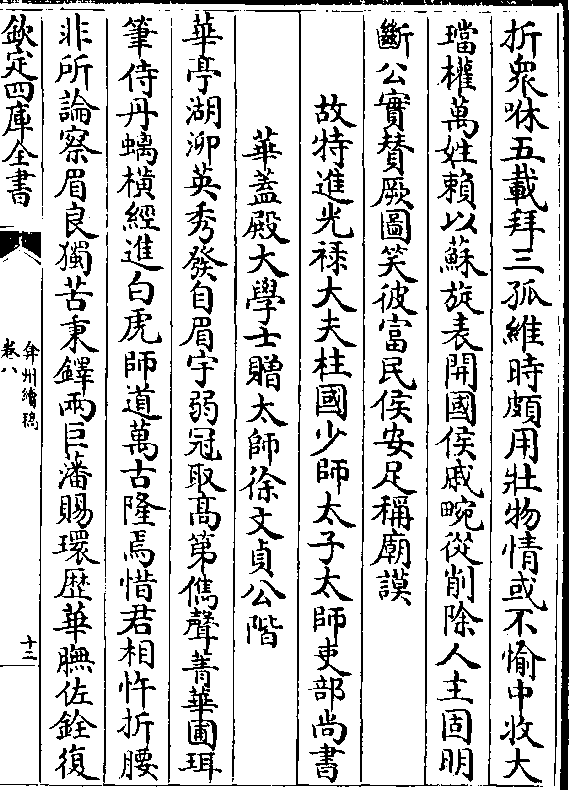 折衆咻五載拜三孤維時頗用壯物情或不愉中收大
璫權萬姓賴以蘇旋表開國侯戚畹從削除人主固明
斷公實賛厥圖笑彼富民侯安足稱廟謨
故特進光祿大夫柱國少師太子太師吏部尚書
華蓋殿大學士贈太師徐文貞公階
華亭湖泖英秀發自眉宇弱冠取高第儁聲菁華圃珥
筆侍丹螭橫經進白虎師道萬古隆焉惜君相忤折腰
非所論察眉良獨苦秉鐸兩巨藩賜環歴華膴佐銓復
欽定四庫全書
弇州續稿
卷八
十二